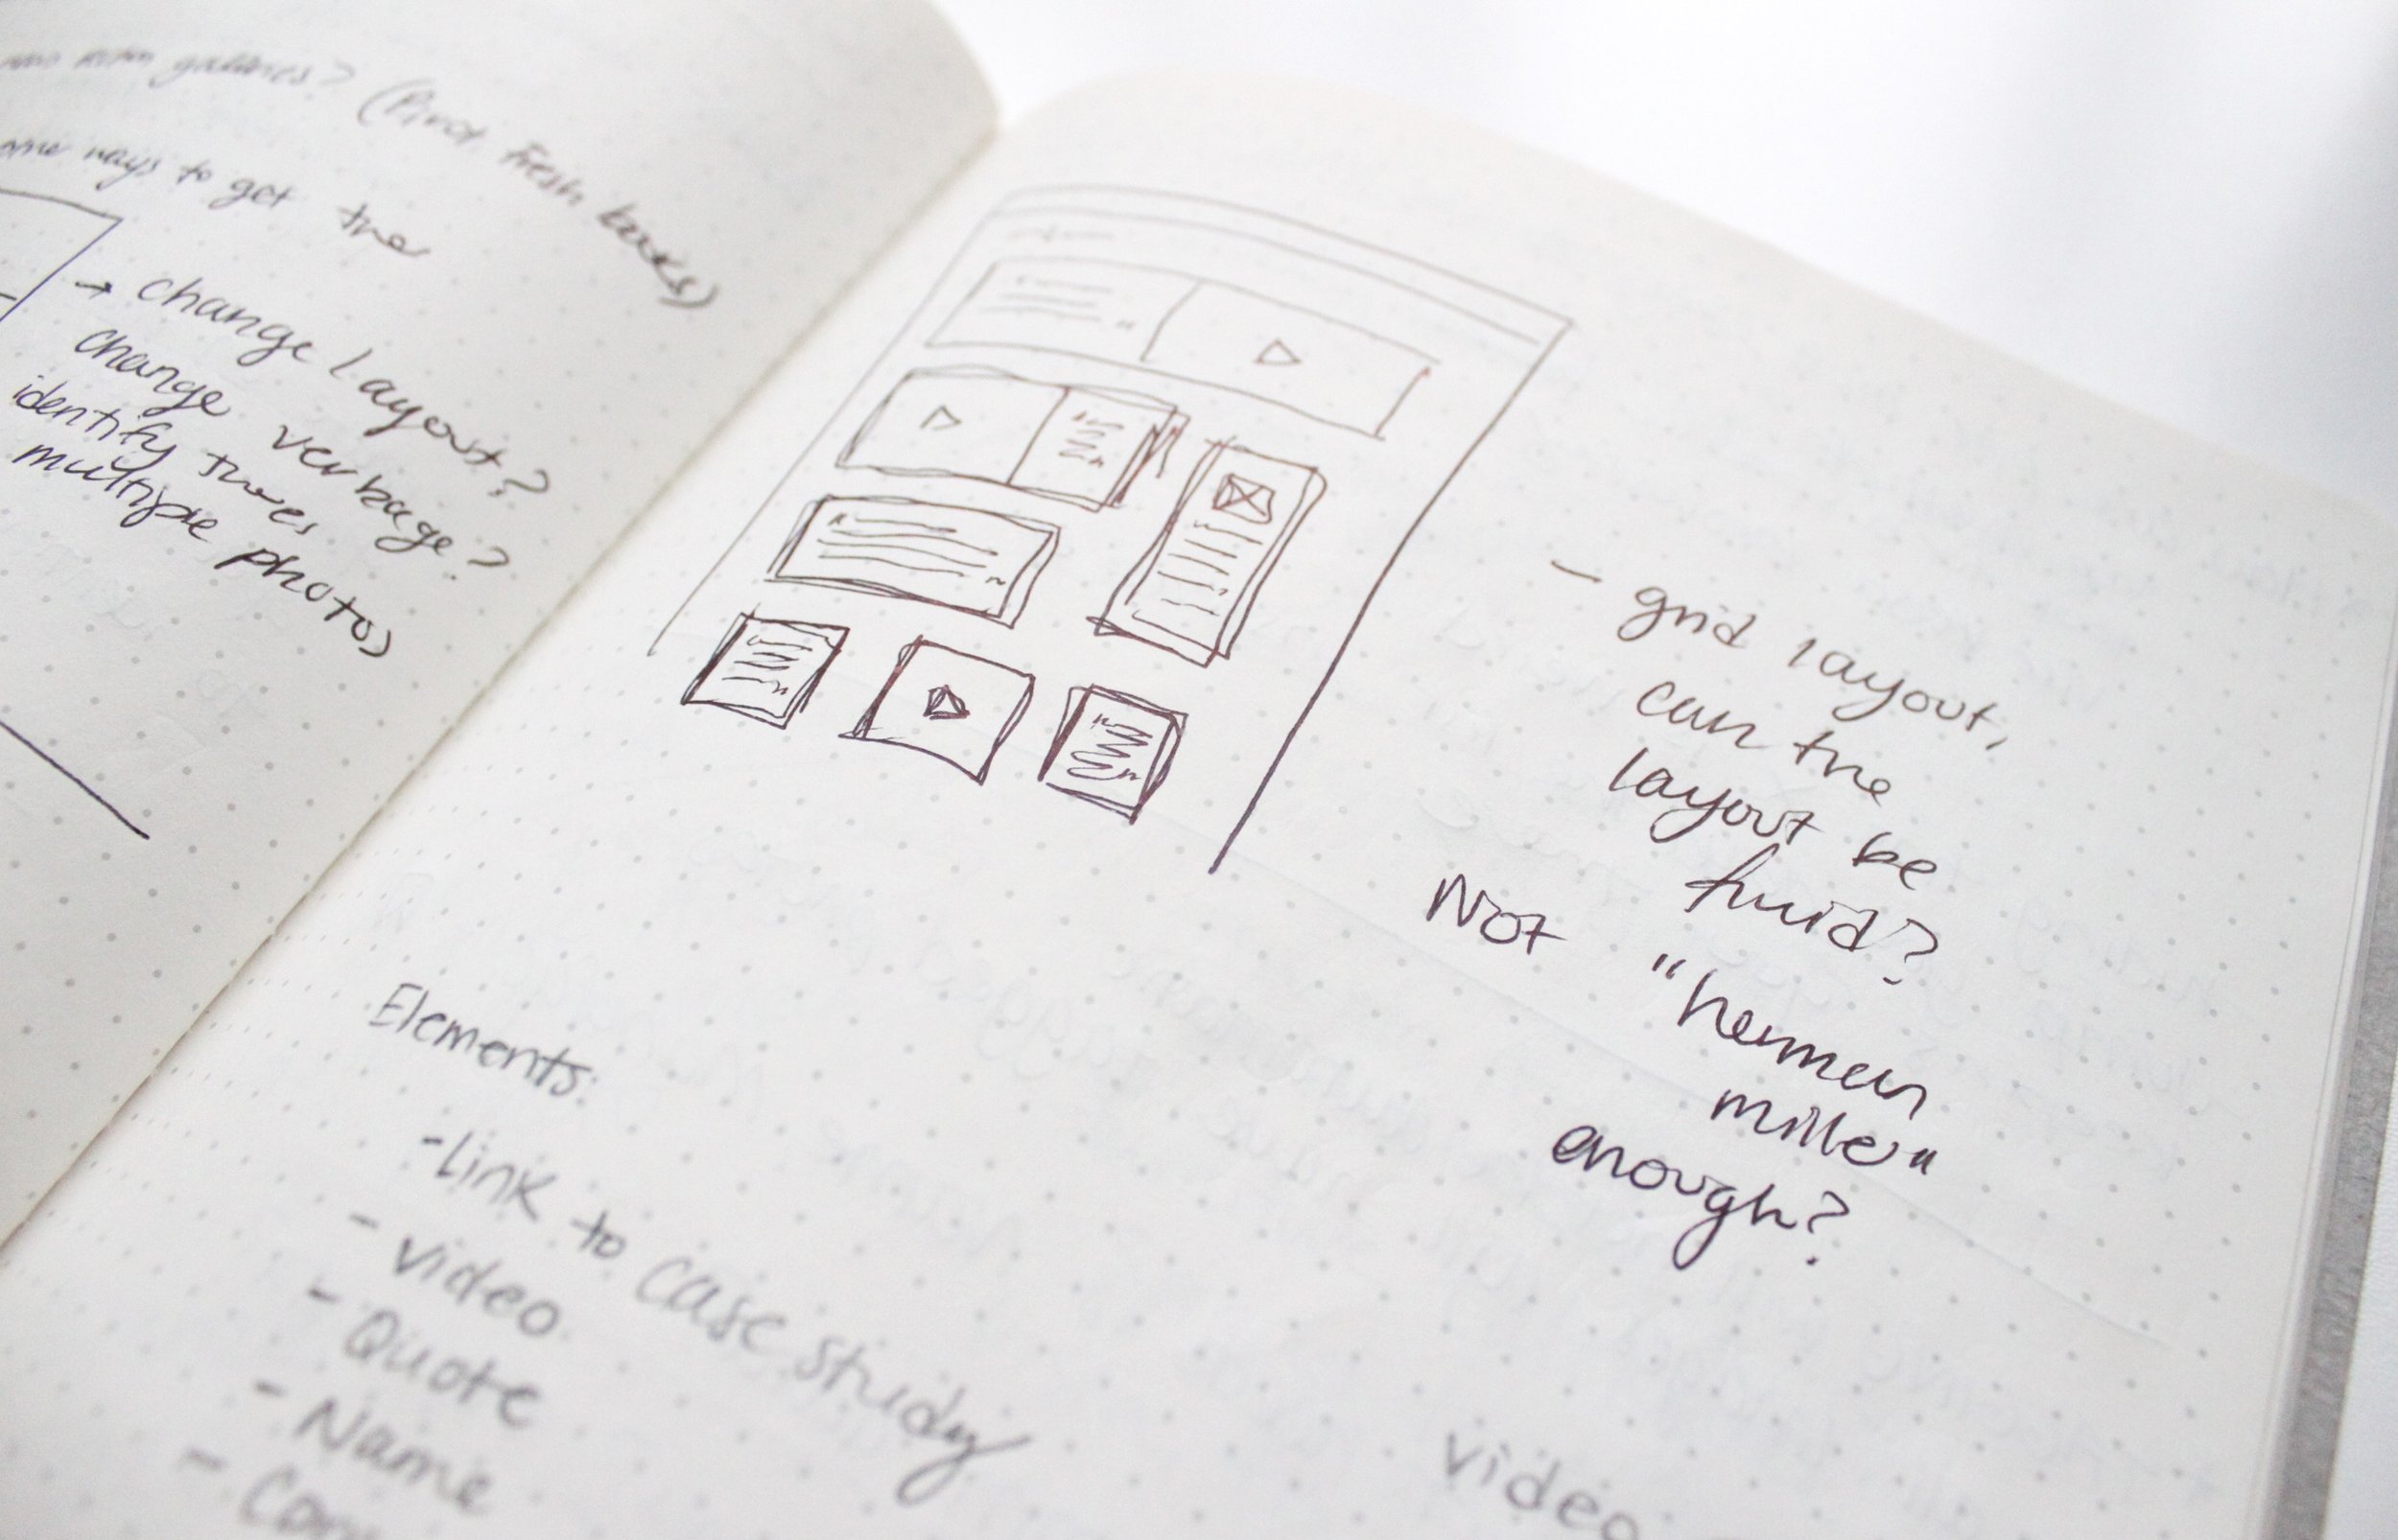 galleries? (Pivot, Fresh books)
ways to get the
→ change layout?
change verbage?
identify
multiple photos
- grid layout,
can the
layout be
fluid?
Not "herman
miller"
enough?
Elements:
- Link to case study
- video
- Quote
- Name
video